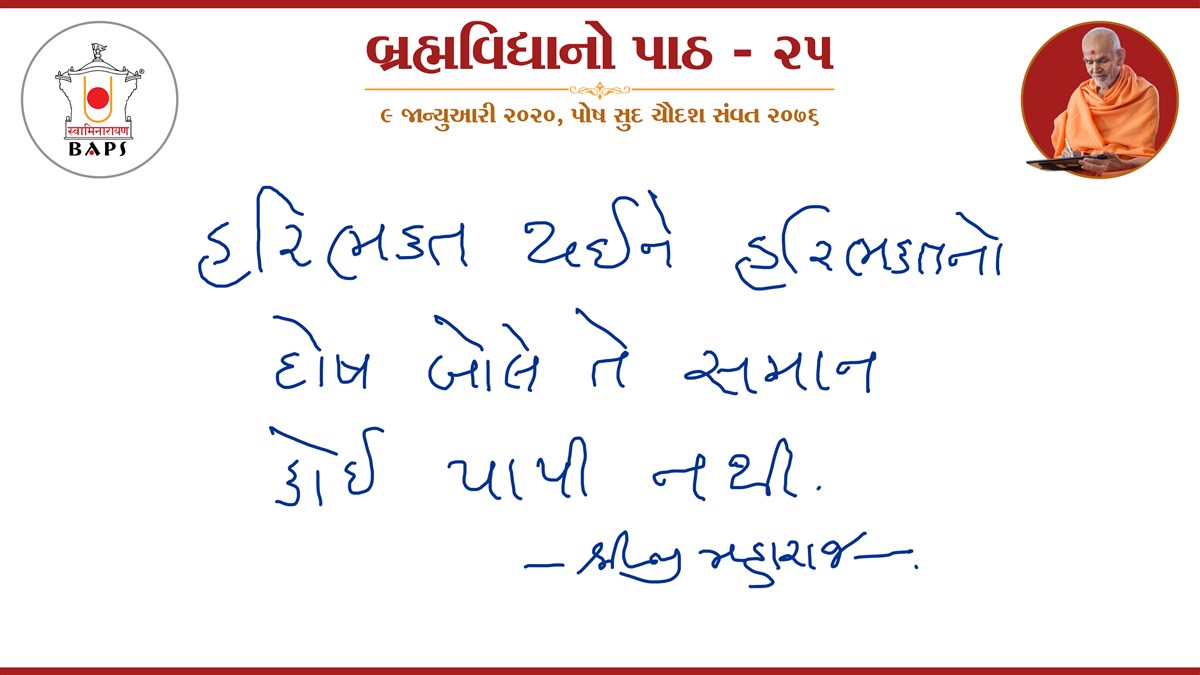 બ્રહ્મવિદ્યાનો પાઠ - ૨૫
૯ જાન્યુઆરી ૨૦૨૦, પોષ સુદ ચૌદશ સંવત ૨૦૭૬
स्वामिनारायण
BAPS
હરિભક્ત થઈને હરિભક્તનો
દોષ બોલે તે સમાન
કોઈ પાપી નથી.
- શ્રીજી મહારાજ -.